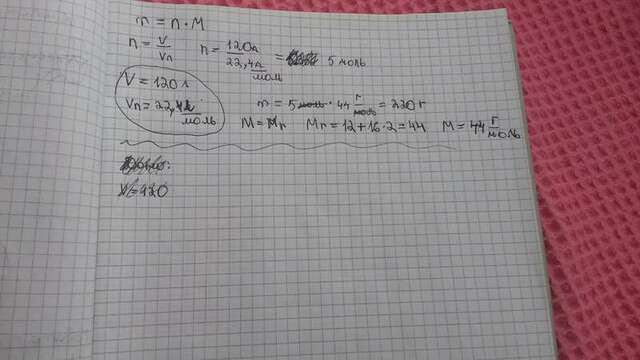 m = n · M
n = V/Vn n = 120л/22,4 л/моль = 5 моль
V = 120 л
Vn = 22,4 л/моль m = 5 моль · 44 г/моль = 220 г
M = Mr Mr = 12 + 16 · 2 = 44 M = 44 г/моль
V = 120